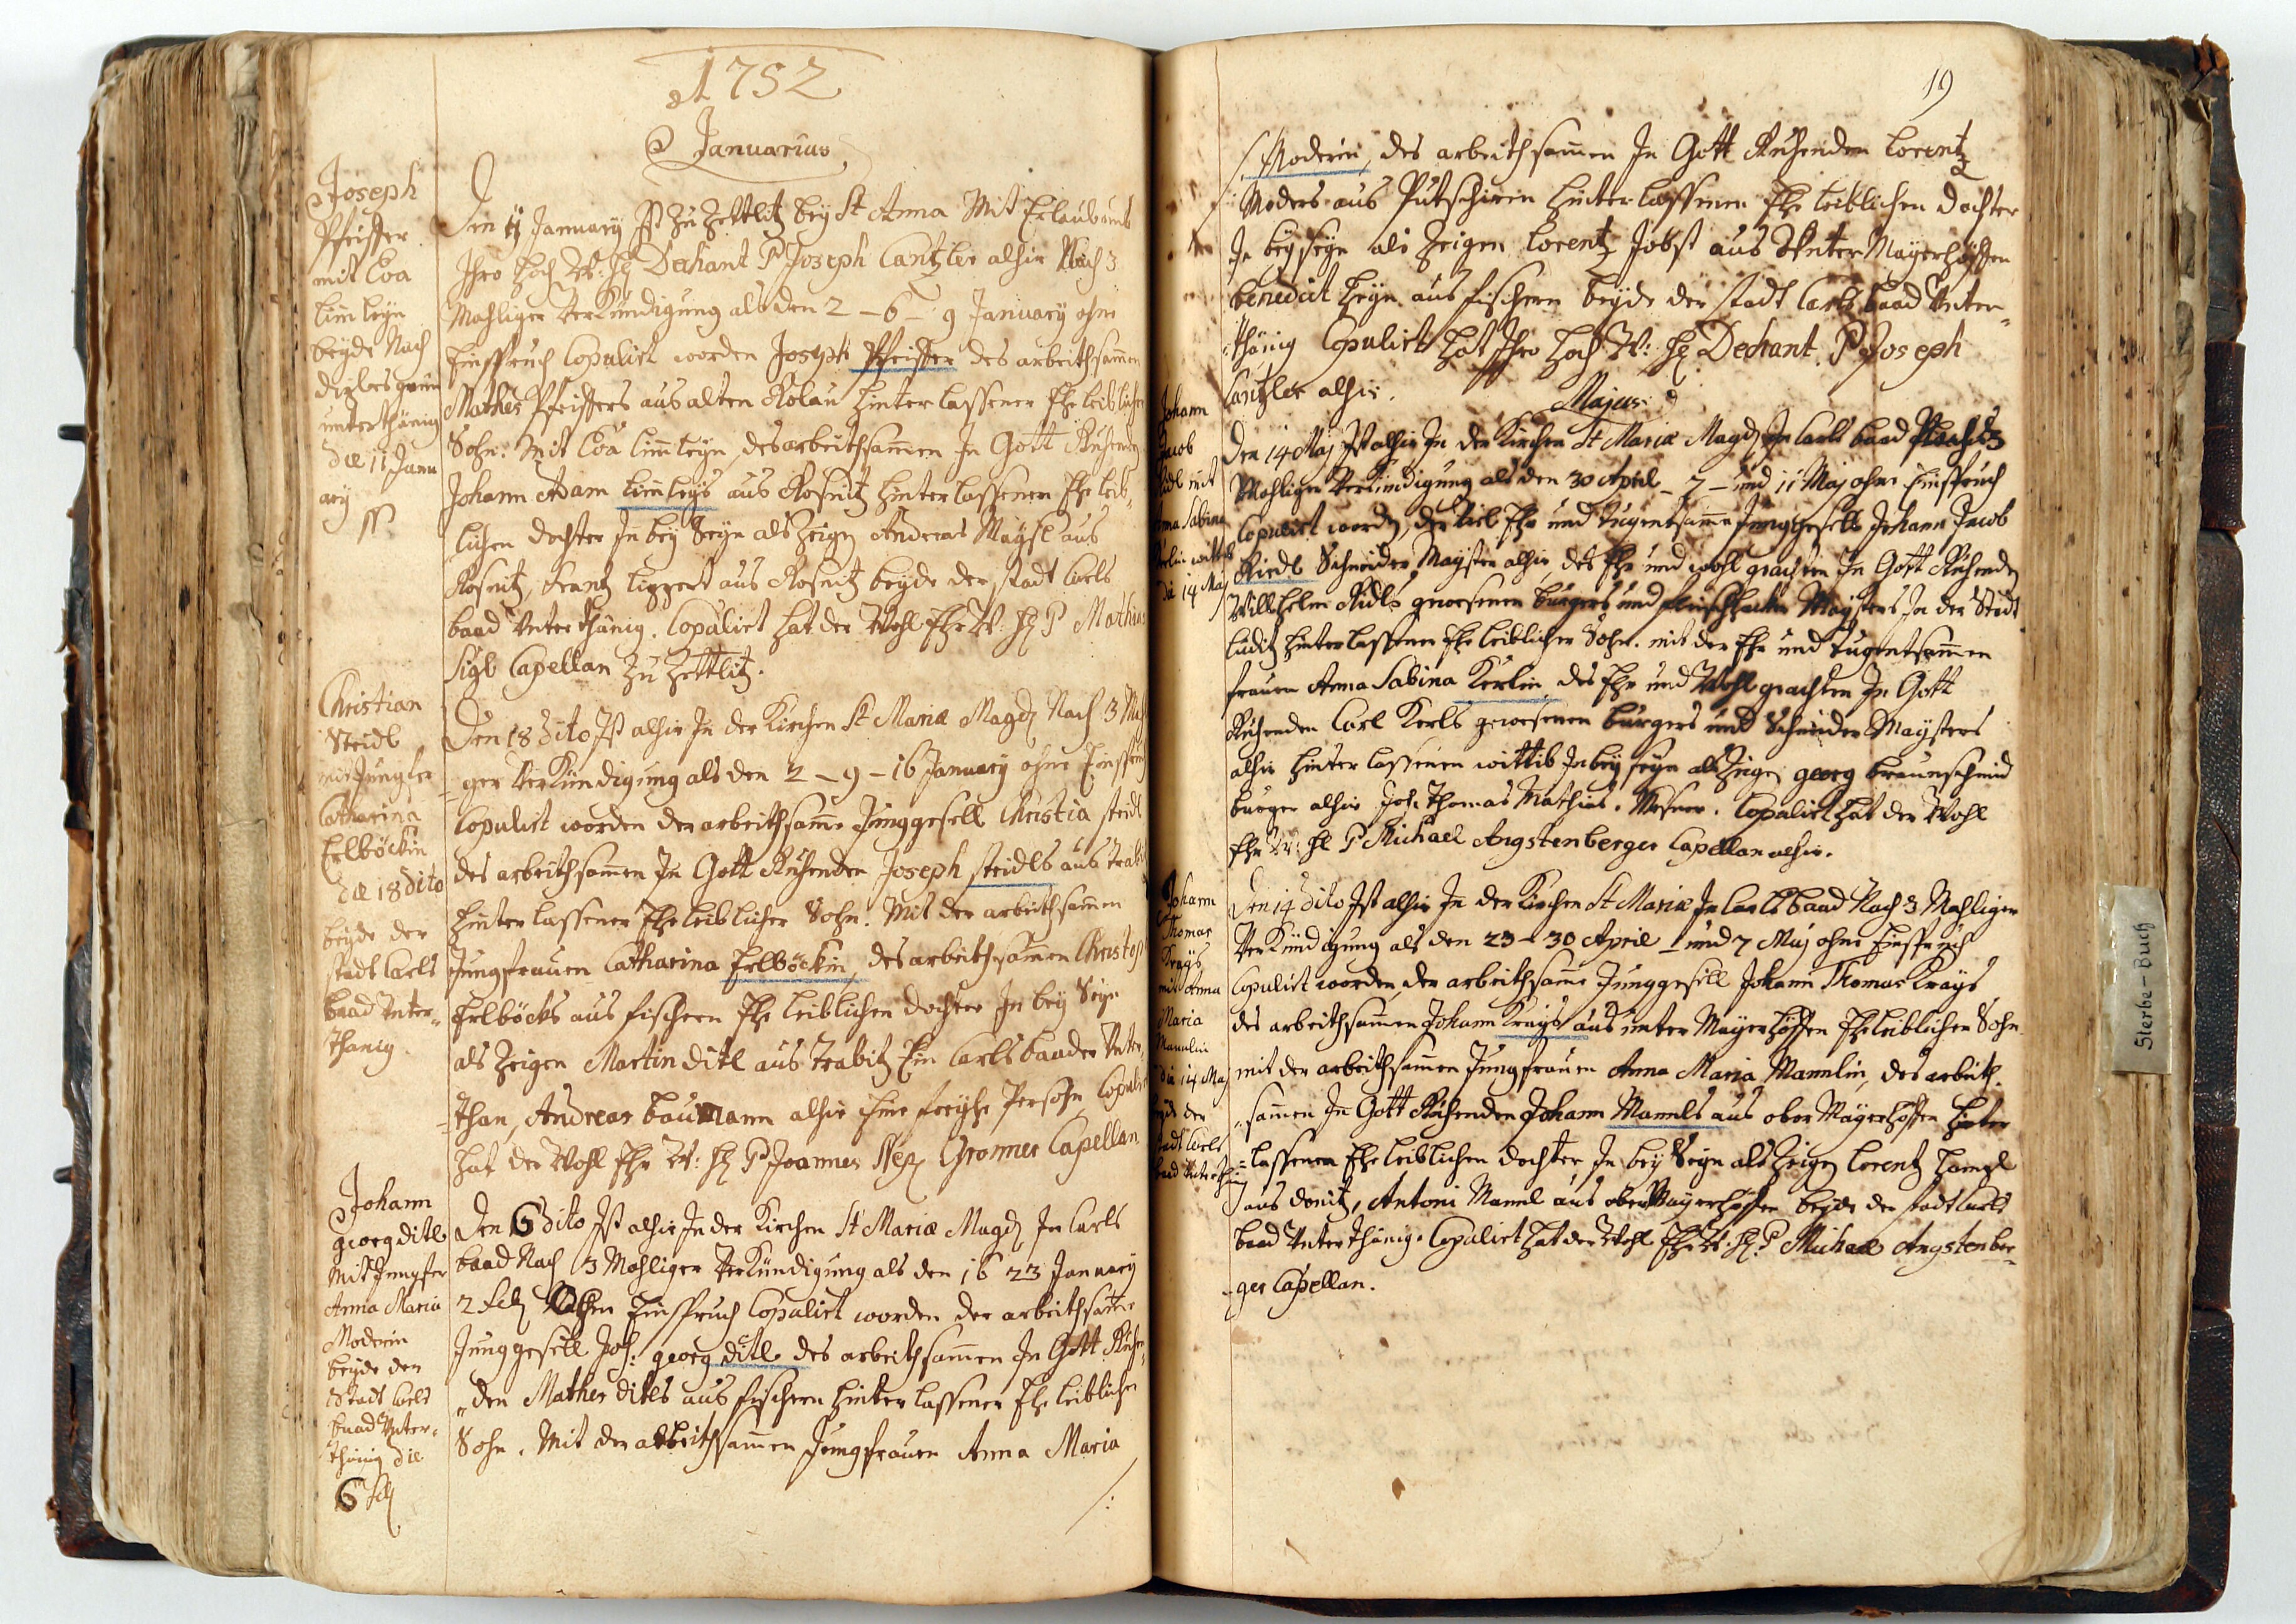 A 1752
Januarius
Joseph
Pfeiffer
mit Eva
Limleyn
beyde Nach
unterthänig
die 11 Janu
ary
Den 11 January Ist zu Zettlitz bey St Anna Mit Erlaubnus
Ihro Hoch W: H: Dechant P Joseph Cantzler alhir Nach 3
Mahliger Verkündigung als den 2 - 6 - 9 January ohne
Einspruch Copulirt worden Joseph Pfeiffer des arbeithsamen
Mathes Pfeiffers aus alten Rolau hinter lassener Ehe leiblicher
Sohn: Mit Eva Limleyn, des arbeithsamen In Gott Ruhenden
Johann Adam Limleys aus Rosnitz hinter lassenen Ehe leib
lichen dochter In bey Seyn als Zeigen Andreas Maysl aus
Rosnitz, Frantz Lippert aus Rosnitz beyde der stadt Carls
baad Unterthänig. Copulirt hat der Wohl Ehr W: H: P Mathias
Sigl Capellan zu Zettlitz.
Christian
Steidl
mit Jungfer
Catharina
Erlböckin
die 18 dito
beyde der
stadt Carls
baad Unter=
thänig.
Den 18 dito Ist alhir In der Kirchen St Mariæ Magd: Nach 3 Mahli
ger Verkündigung als den 2 - 9 - 16 January ohne Einspruch
Copulirt worden der arbeithsame Junggesell Christia steidl
des arbeithsamen In Gott Ruhenden Joseph steidls aus
hinter lassener Ehe leiblicher Sohn. Mit der arbeithsamen
Jungfrauen Catharina Erlböckin, des arbeithsamen Christoph
Erlböcks aus fischern Ehe leiblichen dochter In bey Seyn
als Zeigen Martin ditl aus Trabitz Ein Carlsbaader Unter
than, Andreas baumann alhir eine freyhe Persohn, Copulirt
hat der Wohl Ehr W: H: P Joannes Nep: Gronner Capellan
Johann
georg ditl
Mit Jungfer
Anna Maria
Moderin
beyde der
Stadt Carls
baad Unter=
thänig die
6 feb:
Den 6 dito Ist alhir In der Kirchen St Mariæ Magd: In Carls
baad Nach 3 Mahliger Verkündigung als den 16 23 January
2 feb: ohne Einspruch Copulirt worden der arbeithsame
Junggesell Joh: georg ditl des arbeithsamen In Gott Ruhen
den Mathes ditls aus fischern hinter lassener Ehe leiblicher
Sohn. Mit der arbeithsamen Jungfrauen Anna Maria
/:
19
/: Moderin, des arbeithsamen In Gott Ruhenden Lorentz
Moders aus Putschirn hinter lassenen Ehe leiblichen dochter
In beysein als Zeigen Lorentz Jobst aus Unter Mayerhöffen
benedict heyn aus fischern beyde der stadt Carls baad Unter=
thänig Copulirt hat Ihro Hoch W: H: Dechant P Joseph
Cantzler alhir.
Majus
Johann
Jacob
Ridl mit
Anna Sabina
Kerlin wittib
die 14 Maj
Den 14 Maj Ist alhir In der Kirchen St Mariæ Magd: In Carls baad Nach 3
Mahliger Verkündigung als den 30 April - 7 - und 11 Maj ohne Einspruch
Copulirt worden, der Viel Ehr und tugentsame Junggesell Johann Jacob
Riedl Schneider Mayster alhir, des Ehr und wohl geachten In Gott Ruhenden
Willhelm Ridls gewesenen burgers und fleischhacker Maysters In der Stadt
Luditz hinter lassener Ehe leiblicher Sohn. mit der Ehr und tugentsamen
frauen Anna Sabina Kerlin des Ehr und Wohl geachten In Gott
Ruhenden Carl Kerls gewesenen burgers und Schneider Maysters
alhir hinter lassenen wittib In bey seyn als Zeigen georg braunschmid
burger alhir Joh: Thomas Mathias Mesner. Copulirt hat der Wohl
Ehr W: H: P Michael Angstenberger Capellan alhir.
Johann
Thomas
Krays
mit Anna
Maria
Mannlin
die 14 Maj
beyde der
stadt Carls
baad Unterthänig
Den 14 dito Ist alhir In der Kirchen St Mariæ In Carls baad Nach 3 Mahliger
Verkündigung als den 23 - 30 April - und 7 Maj ohne Einspruch
Copulirt worden, der arbeithsame Junggesell Johann Thomas Krays
des arbeithsamen Johann Krays aus unter Mayerhöffen Ehe leiblicher Sohn
mit der arbeithsamen Jungfrauen Anna Maria Mannlin, des arbeith=
samen In Gott Ruhenden Johann Mannls aus ober Mayerhöffen hinter
lassenen Ehe leiblichen dochter In bey Seyn als Zeigen Lorentz
aus donitz, Antoni Mannl aus ober Mayerhöffen beyde der stadt Carls
baad Unterthänig. Copulirt hat der Wohl Ehr W: H: P Michael Angstenber=
ger Capellan.
Sterbe-Buch